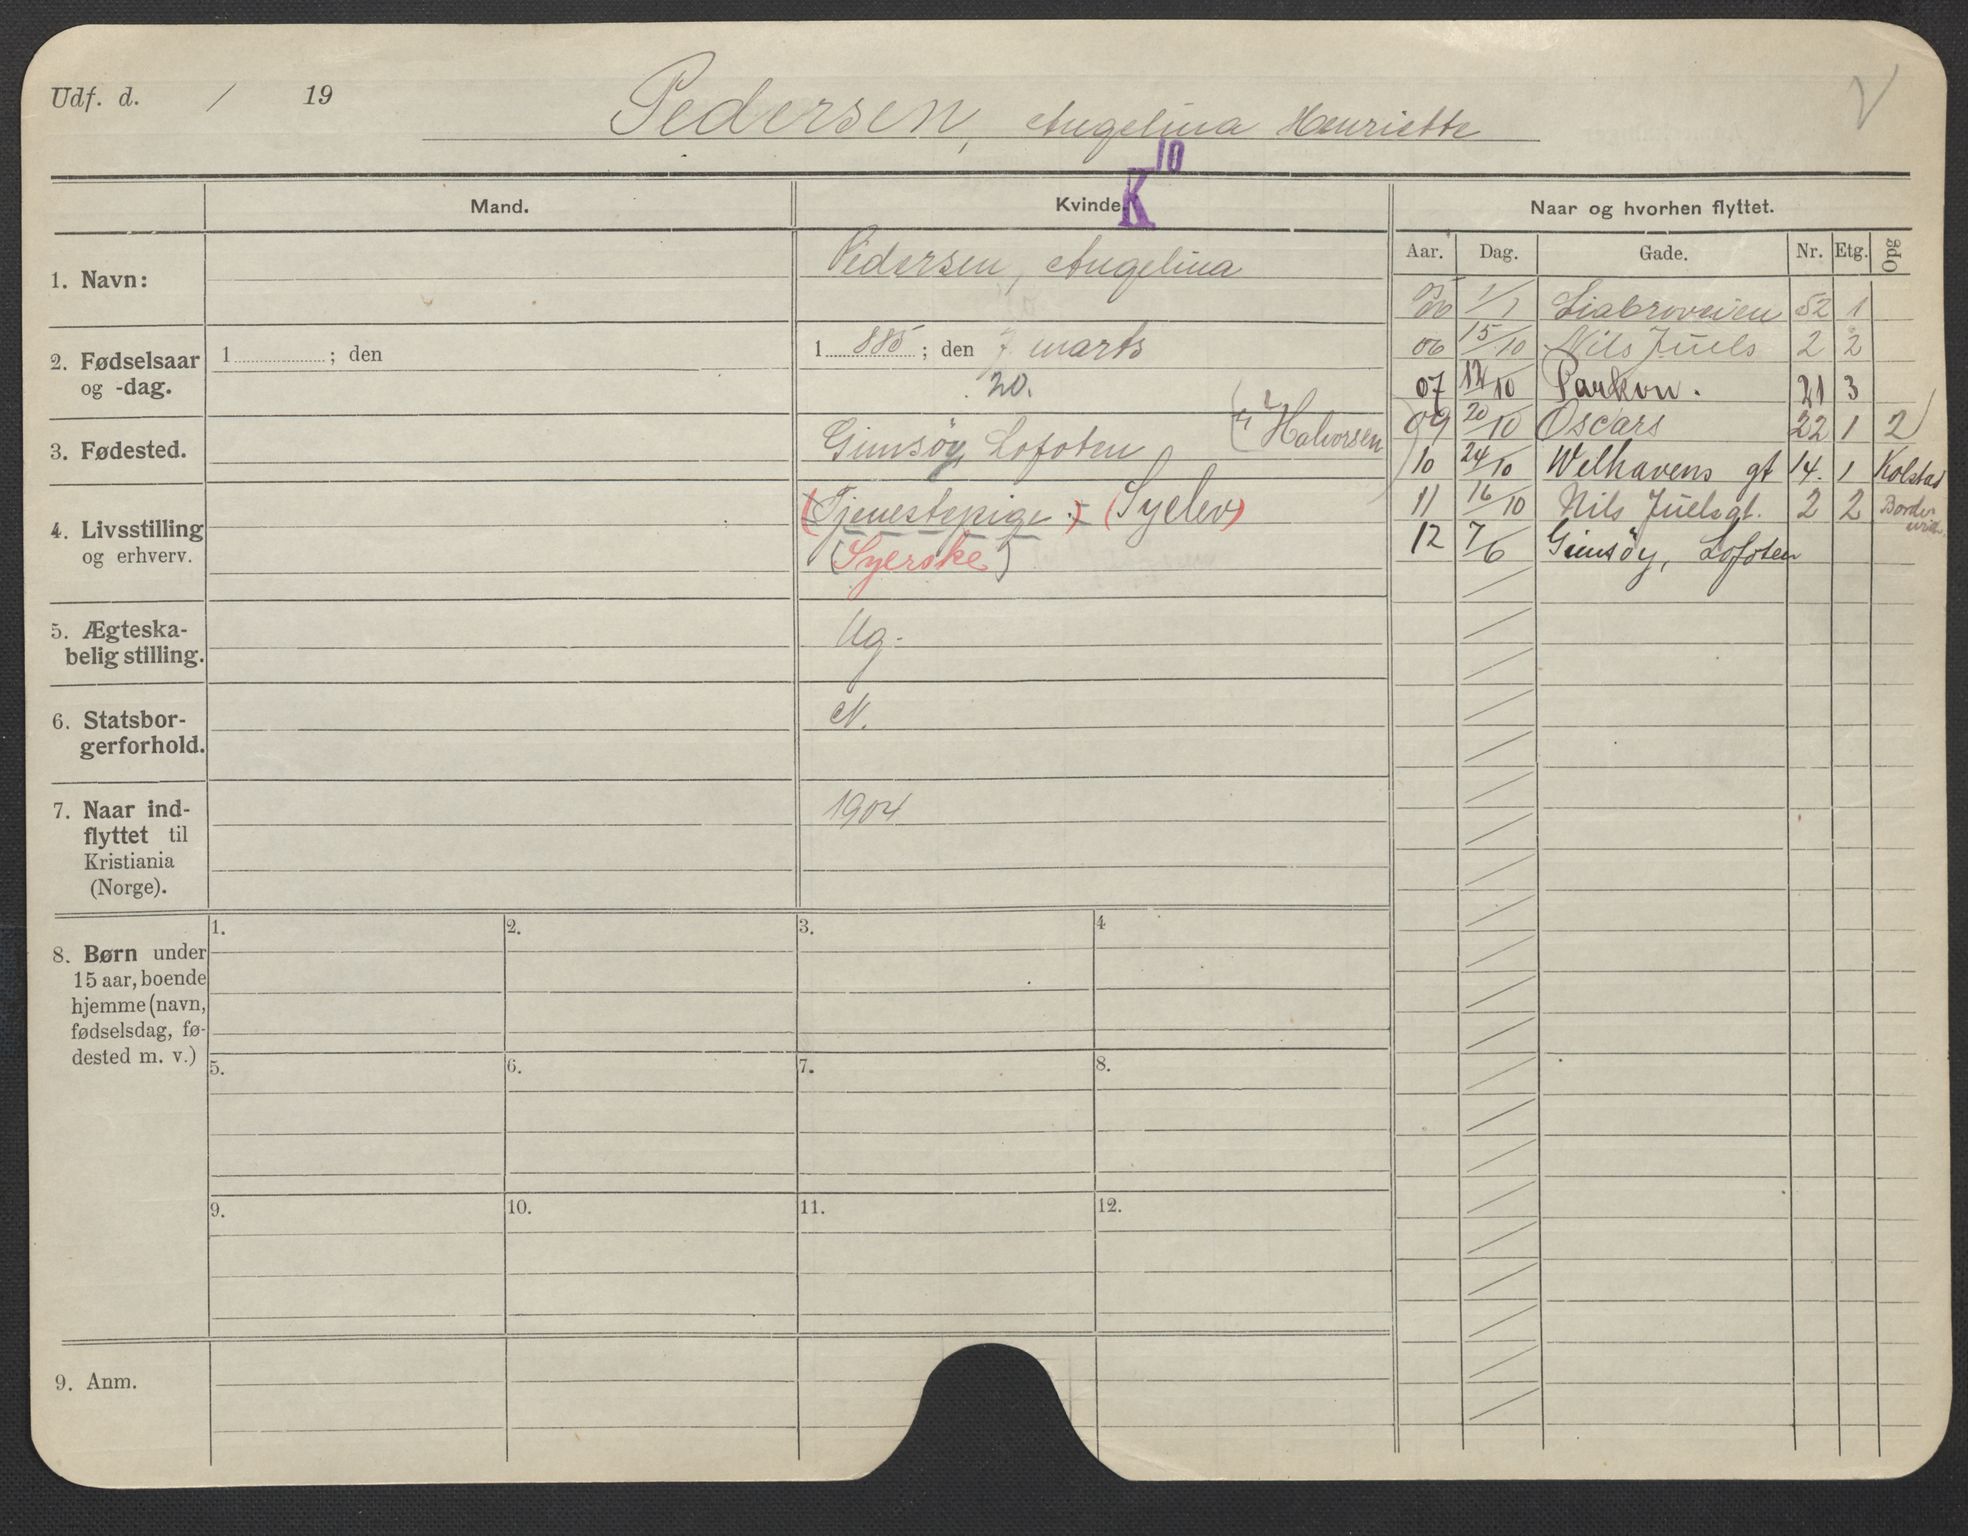 Udf. d. / 19
Pedersen, Angelina Henriette
10
K
Mand. Kvinde. Naar og hvorhen flyttet.
Aar. Dag. Gade. Nr. Etg. Opg
1. Navn: Pedersen, Angelina
2. Fødselsaar og -dag.
1 ; den
1 885 ; den 7. marts
20.
3. Fødested. Gimsöy, Lofoten Halvorsen
4. Livsstilling og erhverv.
(Tjenestepige.) (Syelev)
(Syerske)
5. Ægteska-
belig stilling. Ug.
6. Statsbor-
gerforhold. N.
7. Naar ind-
flyttet til
Kristiania
(Norge).
1904
06 1/1 Liabroveien 52 1
06 15/10 Nils Juels 2 2
07 12/10 Parkvn. 21 3
09 20/10 Oscars 22 1 2
10 24/10 Welhavens gt 14. 1 Kolstad
11 16/10 Nils Juelsgt. 2 2
12 7/6 Gimsöy, Lofoten
8. Børn under
15 aar, boende
hjemme (navn,
fødselsdag, fø-
dested m. v.)
1. 2. 3. 4
5. 6. 7. 8.
9. 10. 11. 12.
9. Anm.